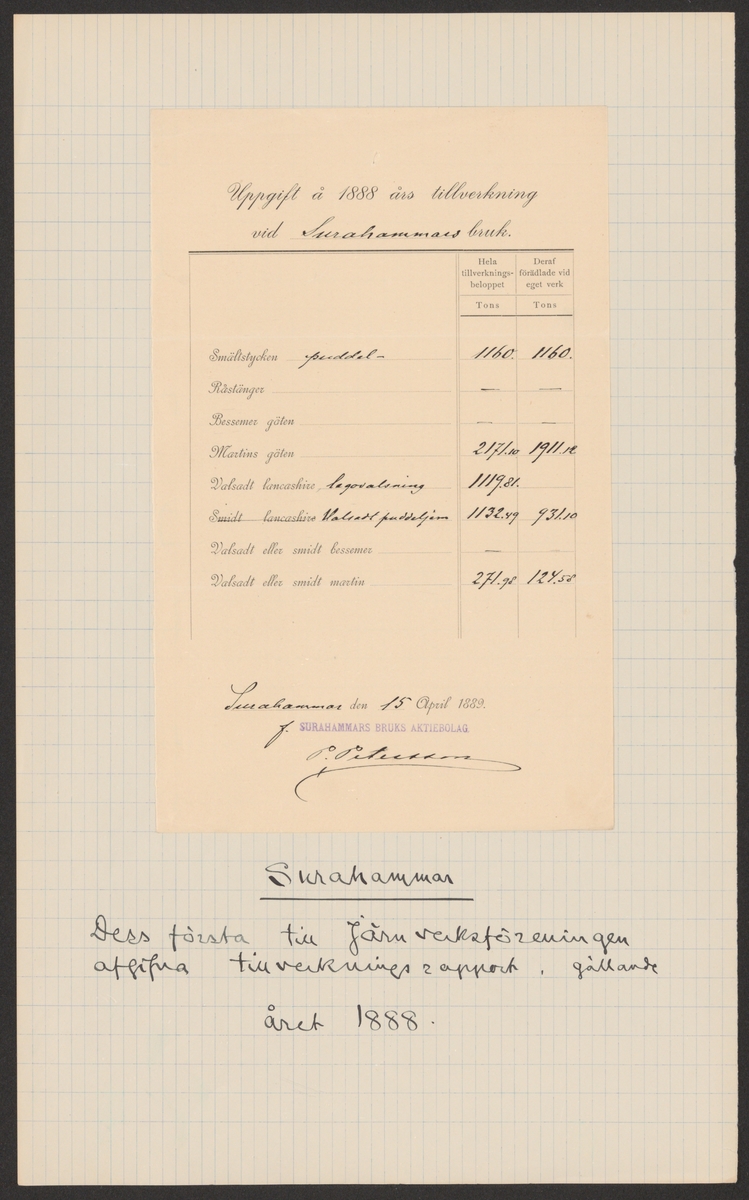 Uppgift å 1888 års tillverkning
vid Surahammars bruk.
Hela tillverknings-beloppet Deraf förädlade vid eget verk
Tons Tons
Smältstycken puddel- 1160. 1160.
Råstänger — —
Bessemer göten — —
Martins göten 2171.10 1911.12
Valsadt lancashire, legovalsning 1119.81.
Smidt lancashire Valsadt puddeljern 1132.49 931.10
Valsadt eller smidt bessemer —
Valsadt eller smidt martin 271.98 124.58
Surahammar den 15 April 1889.
f. SURAHAMMARS BRUKS AKTIEBOLAG
P. Petersson
Surahammar
Dess första till Järnverksföreningen
afgifna tillverkningsrapport, gällande
året 1888.